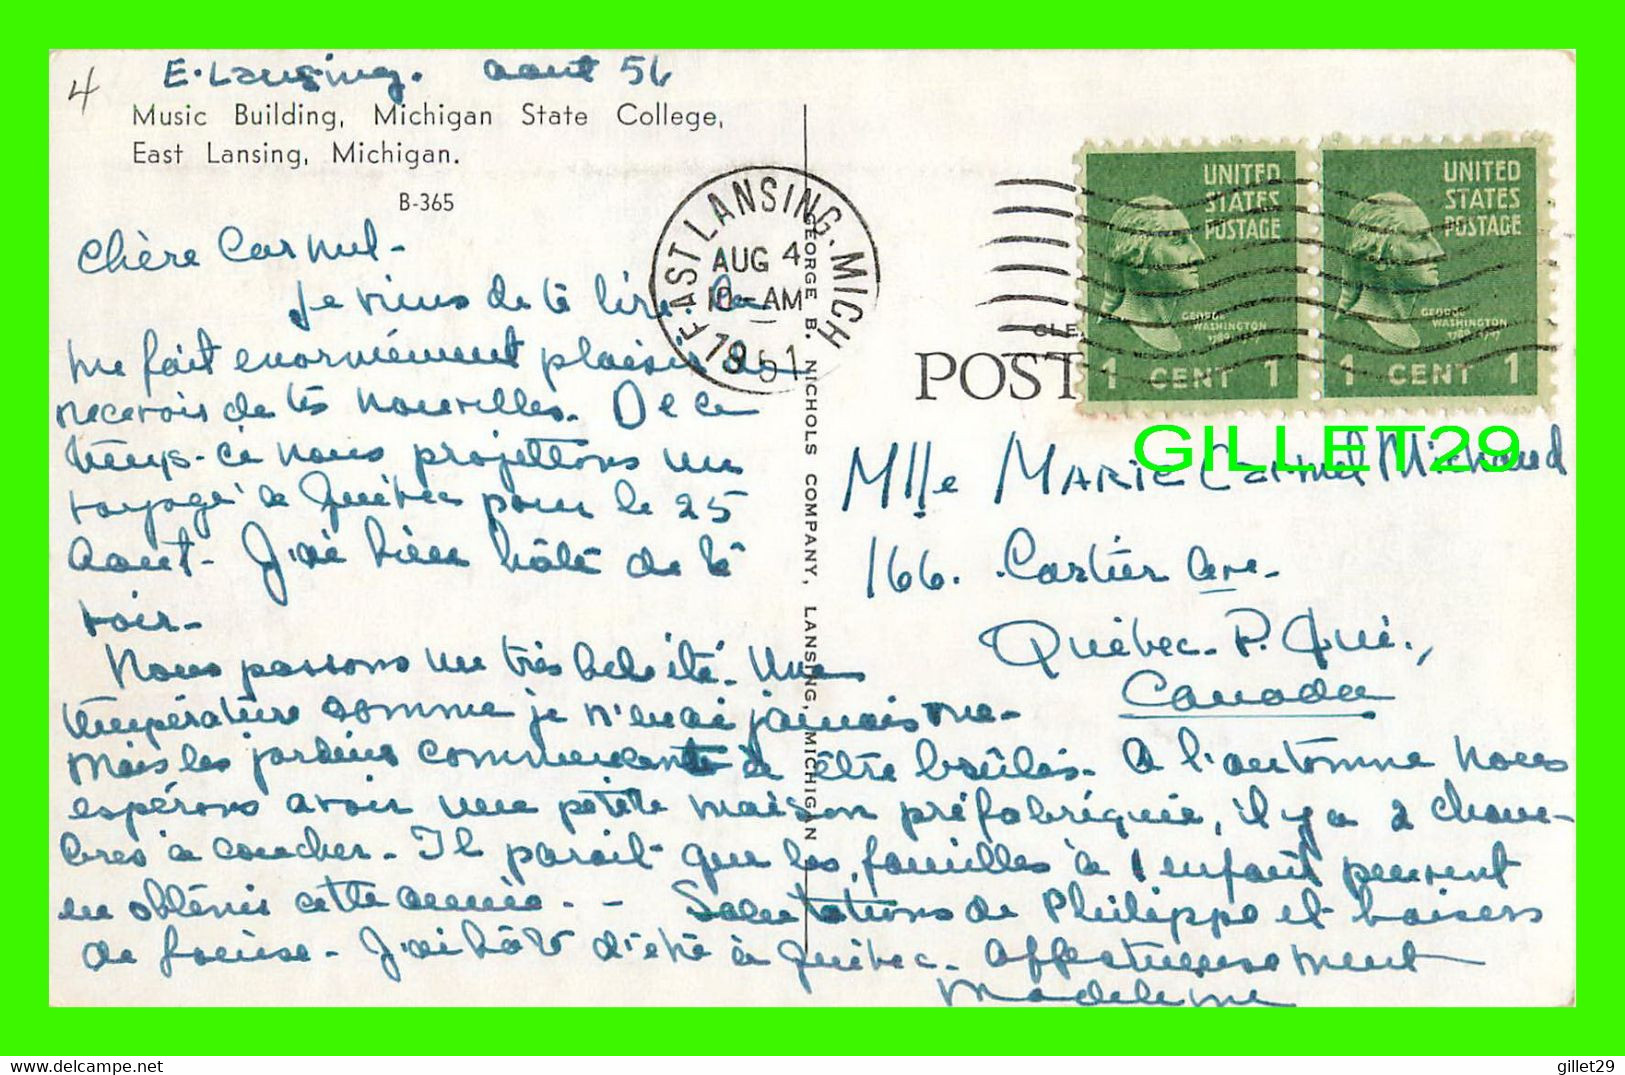 4
E. Lansing. aout 56
Music Building, Michigan State College,
East Lansing, Michigan.
B-365
EAST LANSING, MICH
AUG 4
10-AM
1951
UNITED
STATES
POSTAGE
GEORGE
WASHINGTON
1 CENT 1
UNITED
STATES
POSTAGE
GEORGE
WASHINGTON
1 CENT 1
POST
GEORGE B. NICHOLS COMPANY, LANSING, MICHIGAN
GILLET29
Chère Carmel-
Je viens de te lire
me fait enormément plaisir de
recevoir de tes nouvelles. De ce
temps-ci nous projettons un
voyage à Québec pour le 25
Aout- J'ai bien hâte de te
voir-
Nous passons un très bel été. Une
température comme je n'en ai jamais vue-
Mais les jardins commencent à être brûlés. A l'automne nous
espérons avoir une petite maison préfabriquée, il y a 2 cham-
bres à coucher- Il parait que les familles à 1 enfant peuvent
en obtenir cette année - - Salutations de Philippe et baisers
de - J'ai hâte d'etre à Québec- Affectueusement
Madeleine
Mlle MARIE Carmel Michaud
166. Cartier Ave-
Québec- P. Qué.,
Canada
gillet29
http://www.delcampe.net